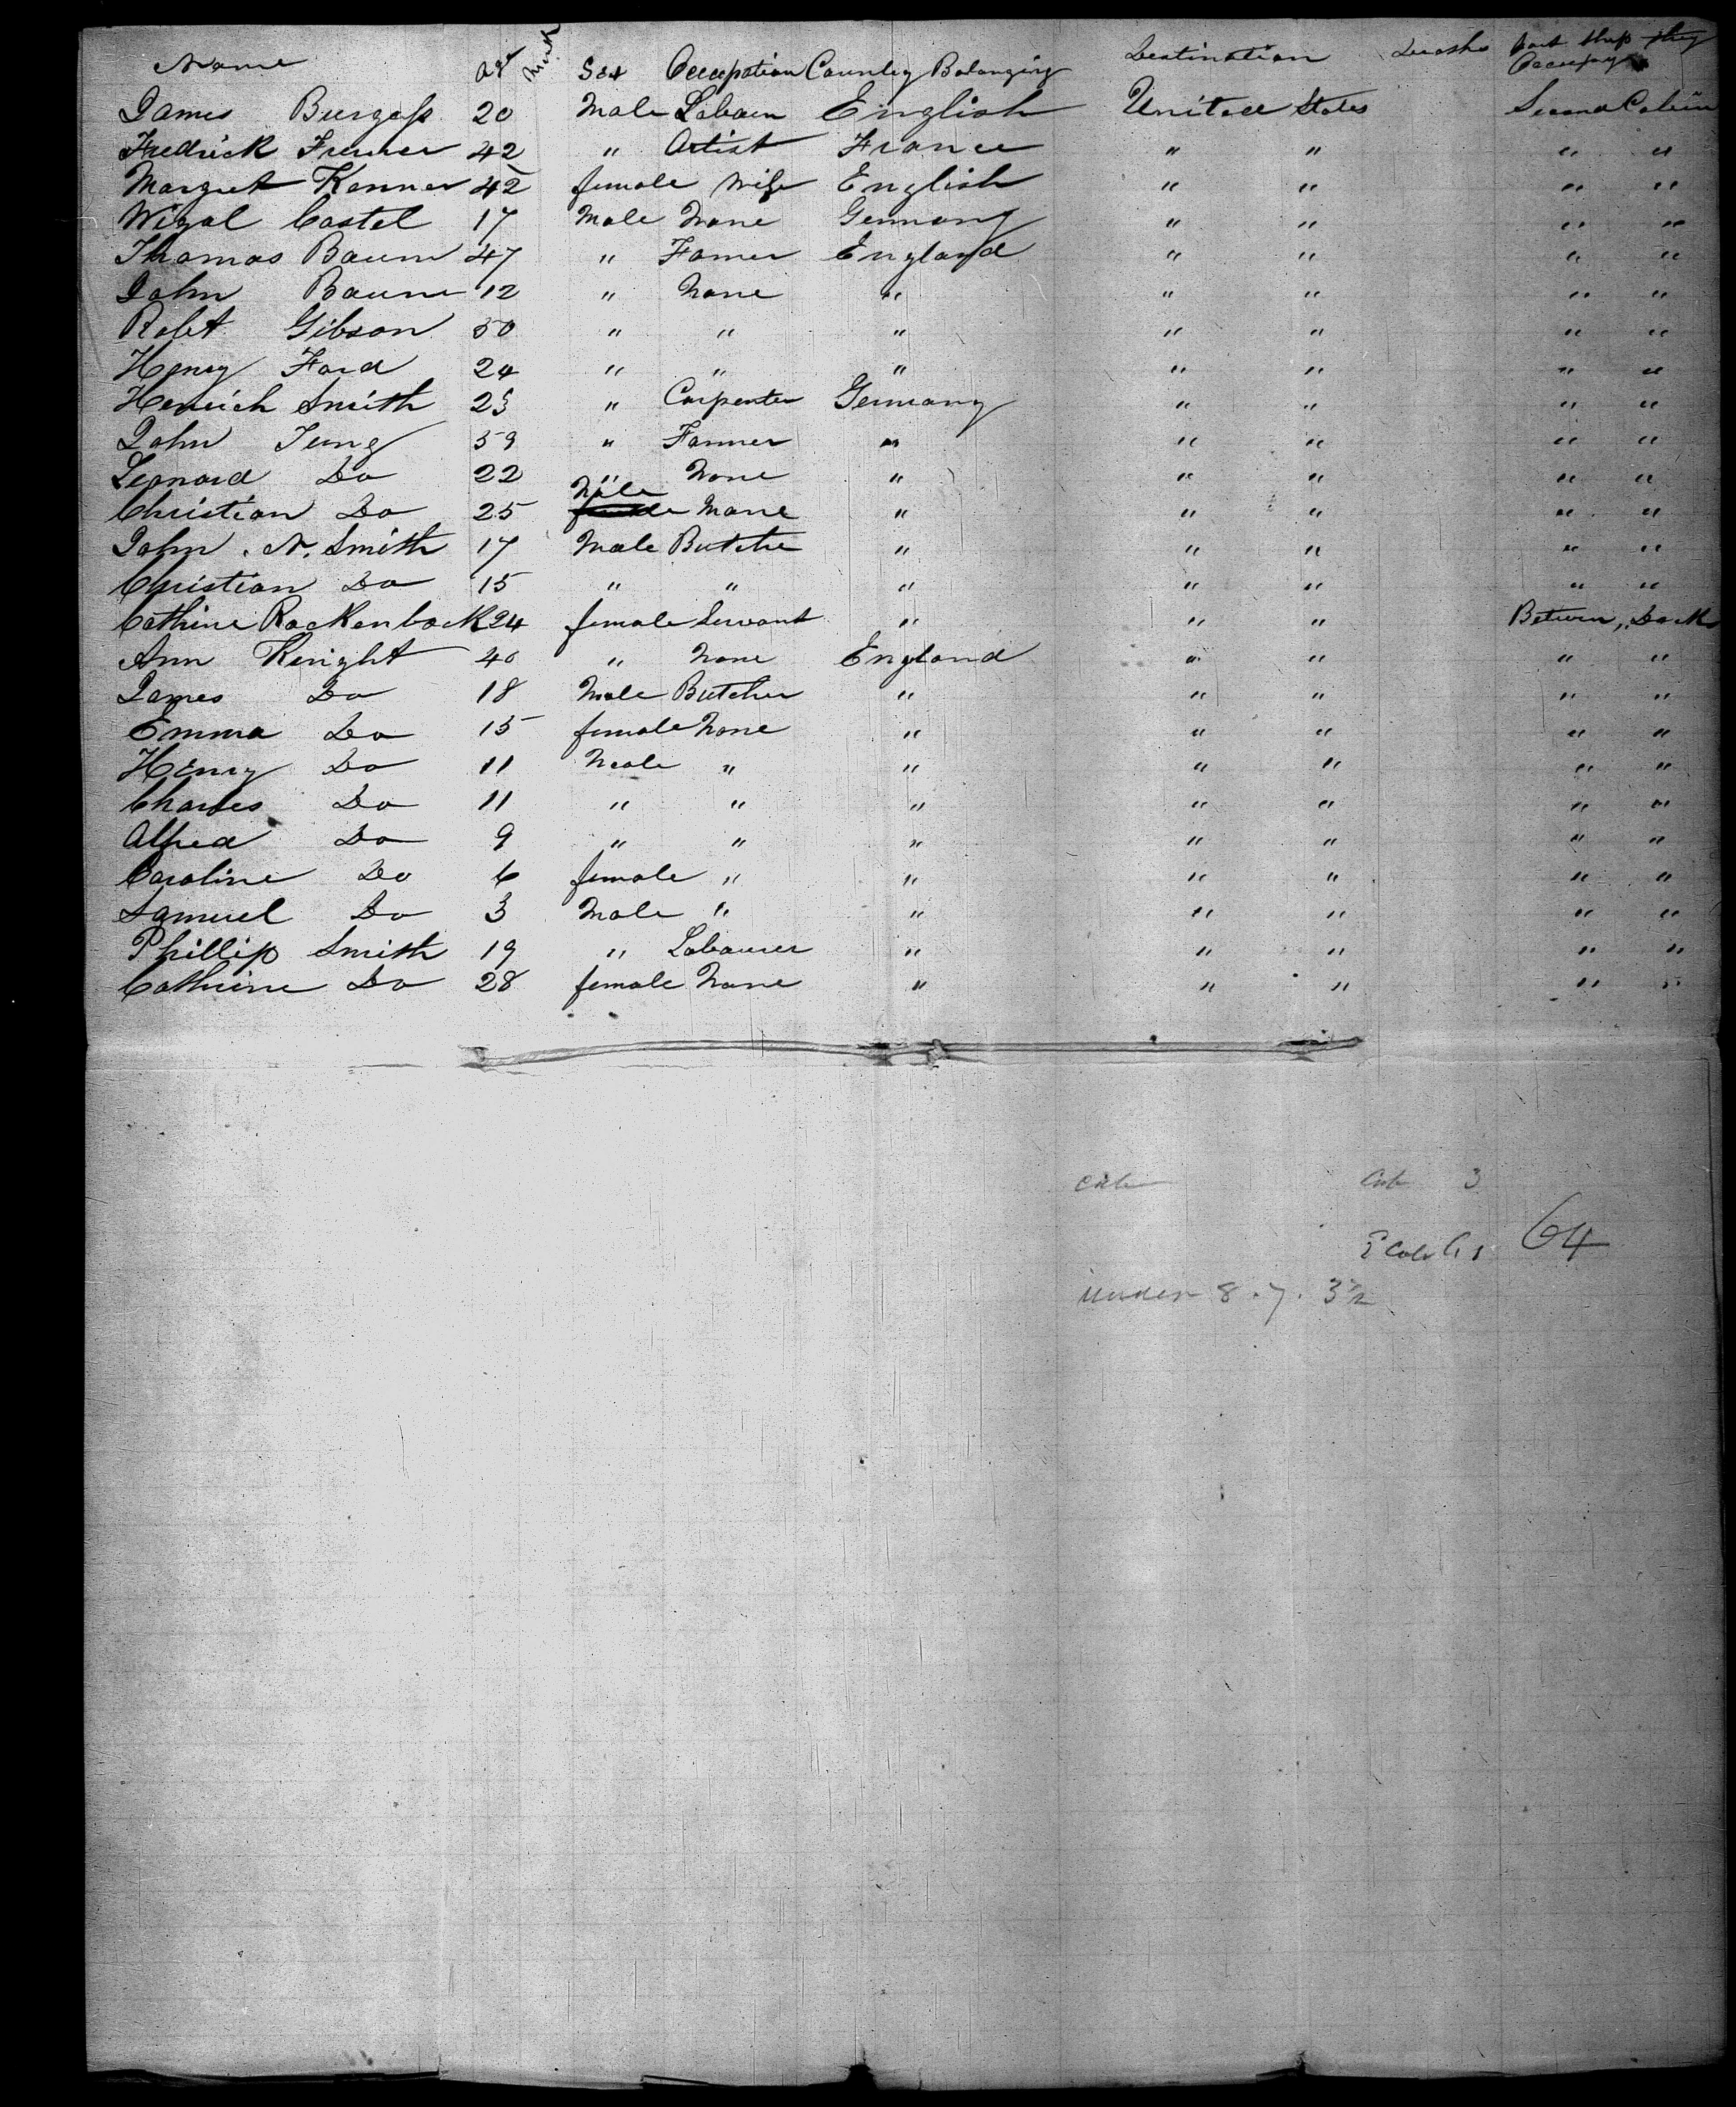 Name Age Sex Occupation Country Belonging Destination Deaths Part Ship they Occupy
James Burgess 20 Male Labour English United States Second Cabin
Fredrick 42 " Artist France " " " "
Margret Kenner 42 female Wife English " " " "
Castel 17 Male None Germany " " " "
Thomas Baum 47 " Famer England " " " "
John Baum 12 " None " " " " "
Robt Gibson 50 " " " " " " "
Henry Ford 24 " " " " " " "
Henrich Smith 25 " Carpenter Germany " " " "
John Jung 59 " Farmer " " " " "
Leonard Do 22 " None " " " " "
Christian Do 25 Male None " " " " "
John N. Smith 17 Male Butcher " " " " "
Christian Do 15 " " " " " " "
Cathine Rockenback 24 female Servant " " " Between Deck
Ann Knight 40 " None England " " " "
James Do 18 Male Butcher " " " " "
Emma Do 15 female None " " " " "
Henry Do 11 Male " " " " " "
Charles Do 11 " " " " " " "
Alfred Do 9 " " " " " " "
Caroline Do 6 female " " " " " "
Samuel Do 3 Male " " " " " "
Phillip Smith 19 " Labourer " " " " "
Cathrine Do 28 female None " " " " "
Cab 3
64
under 8. 7. 3½